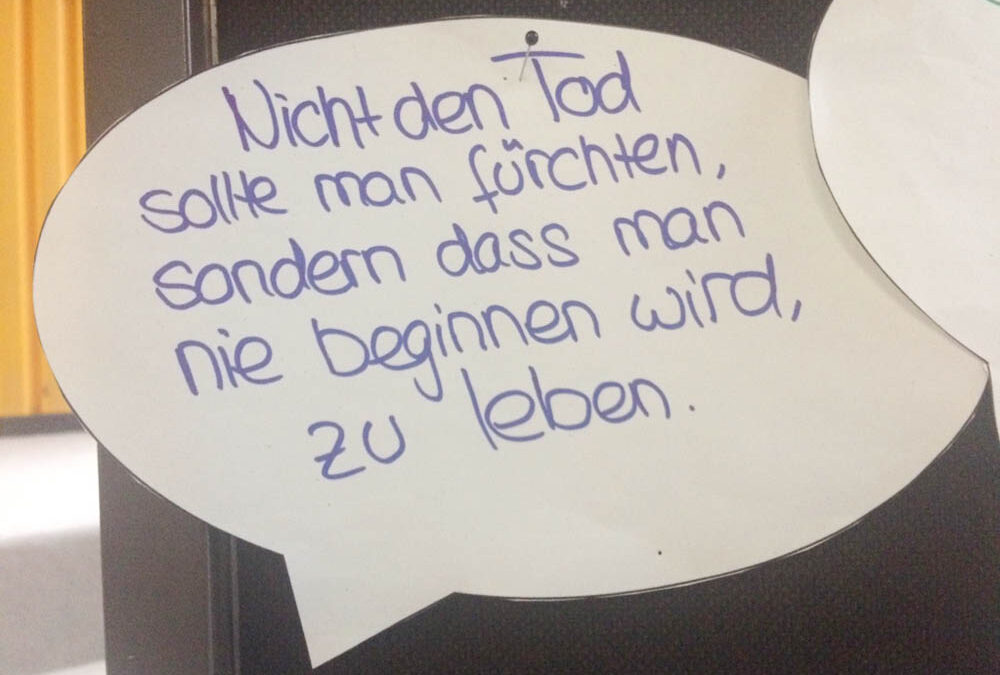 Nicht den Tod
sollte man fürchten,
sondern dass man
nie beginnen wird,
zu leben.